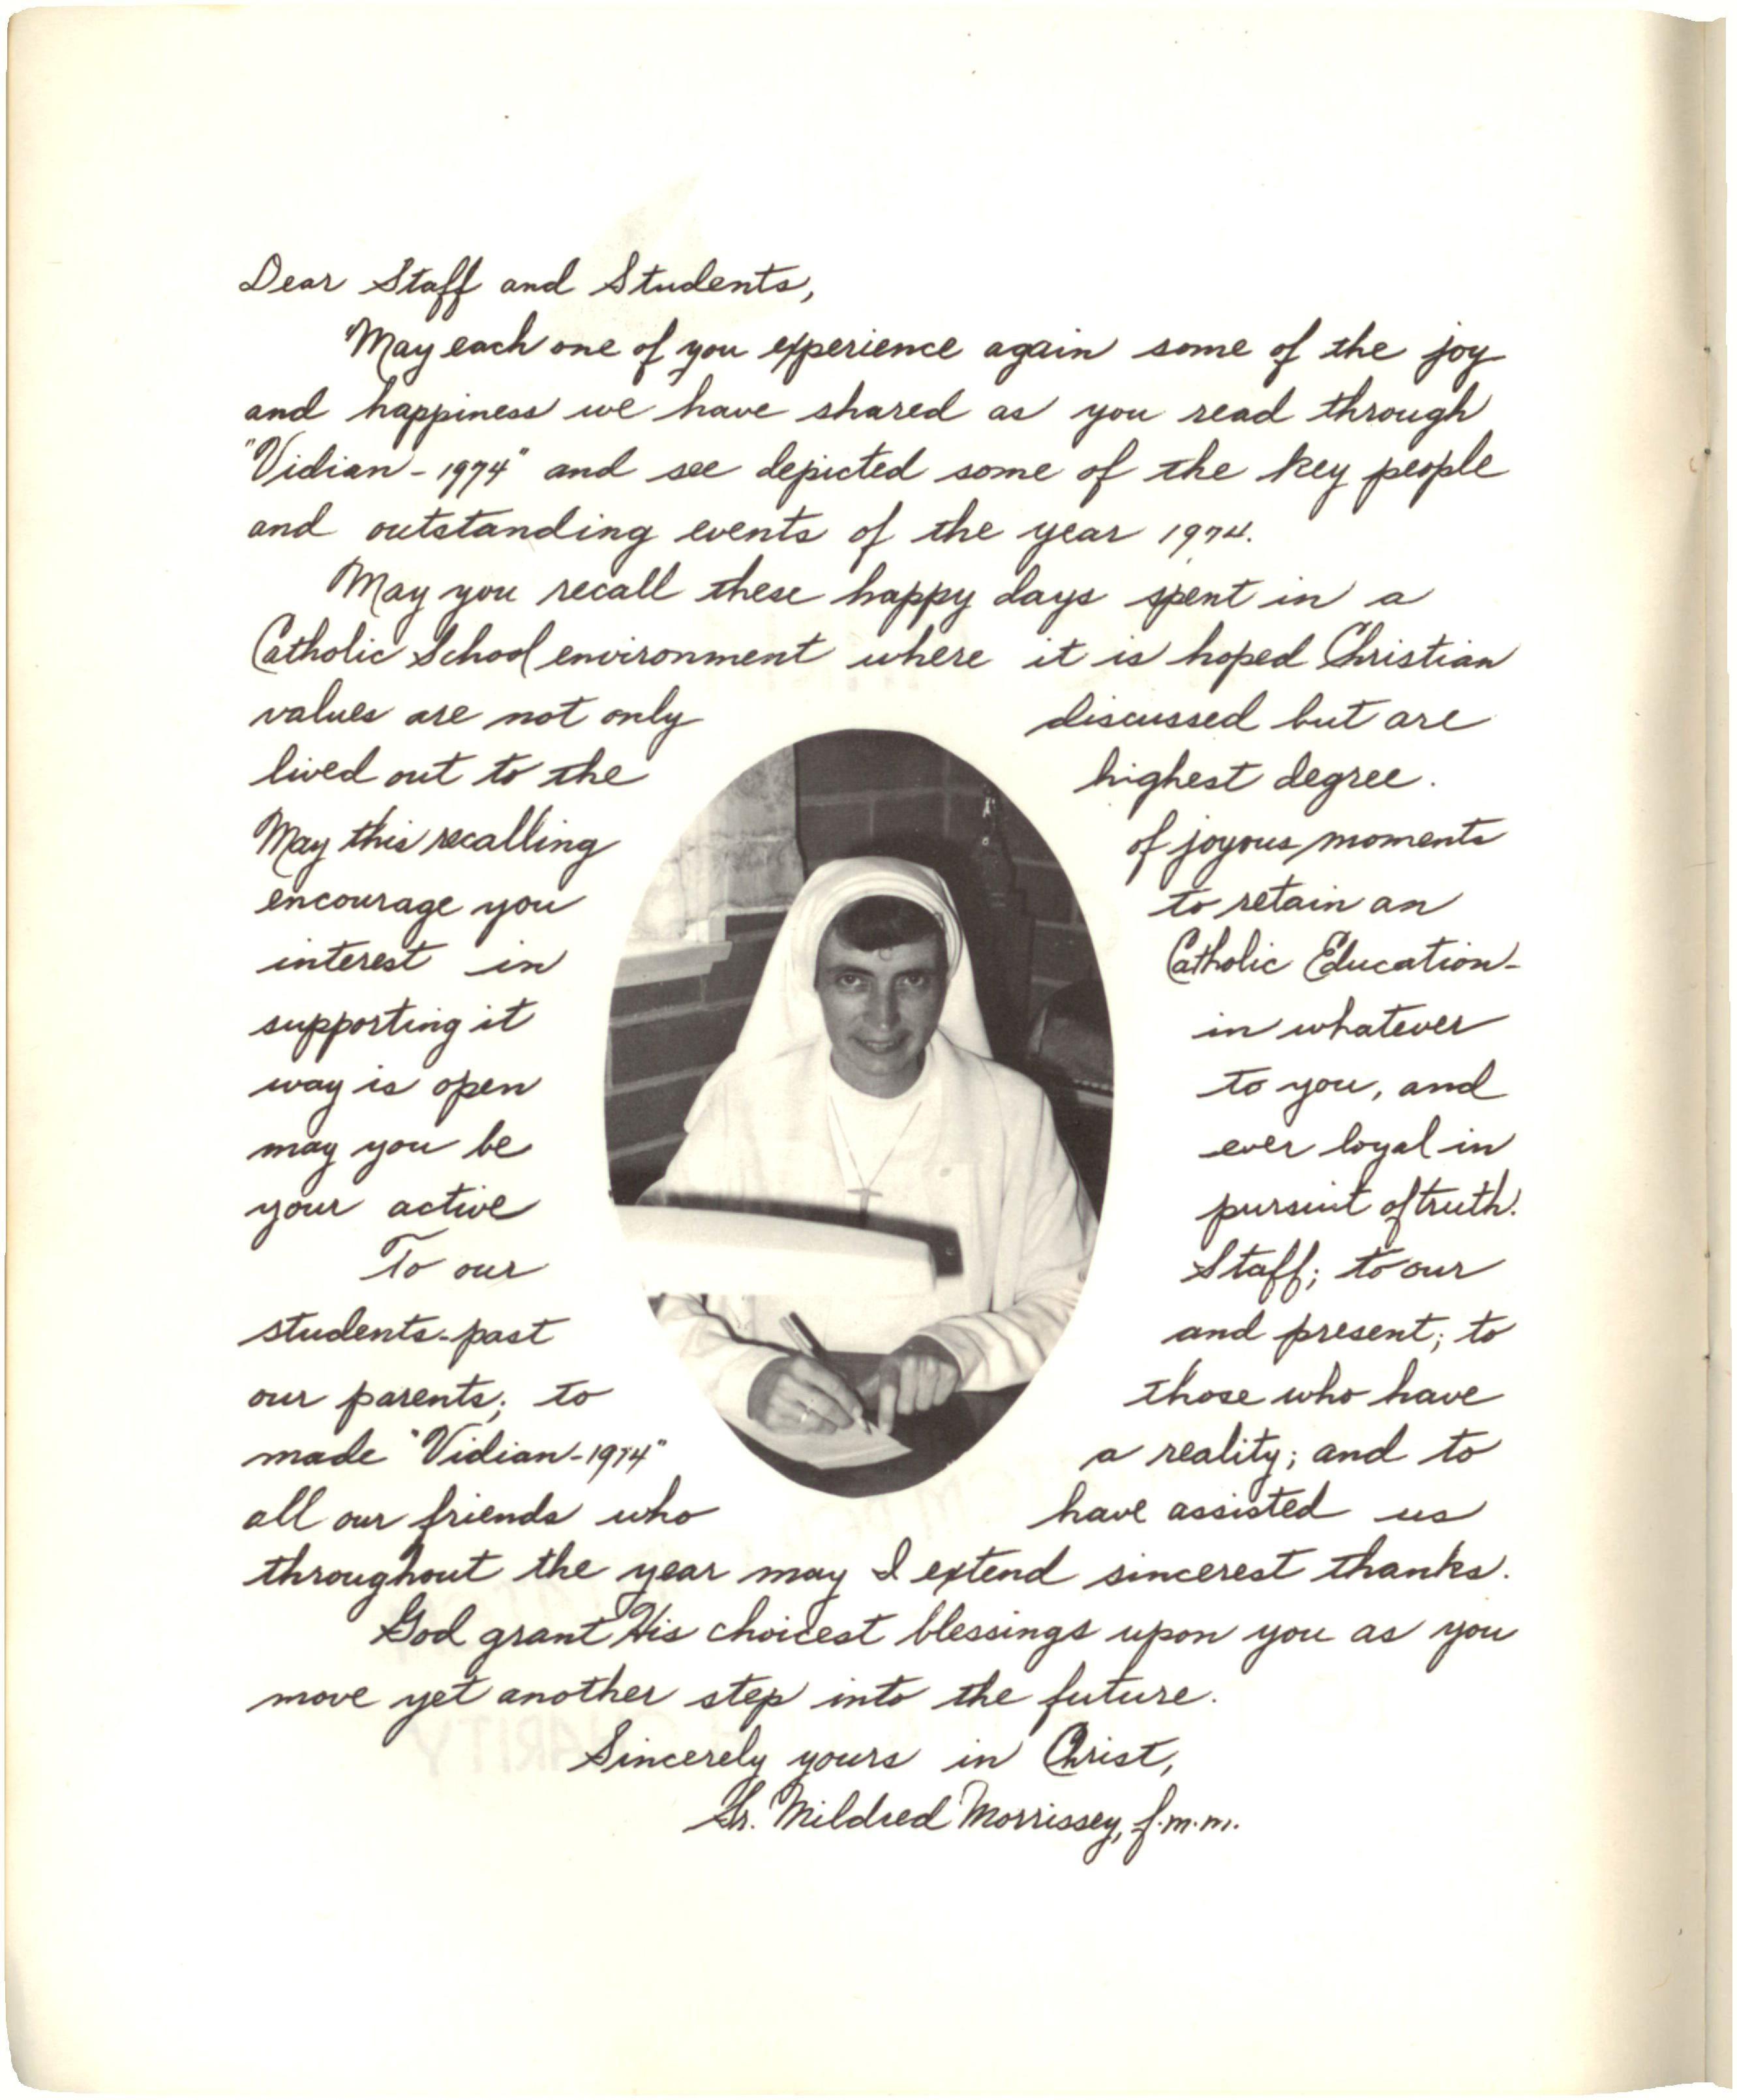 Dear Staff and Students,
May each one of you experience again some of the joy
and happiness we have shared as you read through
"Vidian - 1974" and see depicted some of the key people
and outstanding events of the year 1974.
May you recall these happy days spent in a
Catholic School environment where it is hoped Christian
values are not only discussed but are
lived out to the highest degree.
May this recalling of joyous moments
encourage you to retain an
interest in Catholic Education-
supporting it in whatever
way is open to you, and
may you be ever loyal in
your active pursuit of truth.
To our Staff; to our
students-past and present; to
our parents; to those who have
made "Vidian-1974" a reality; and to
all our friends who have assisted us
throughout the year may I extend sincerest thanks.
God grant His choicest blessings upon you as you
move yet another step into the future.
Sincerely yours in Christ,
Sr. Mildred Morrissey, f.m.m.